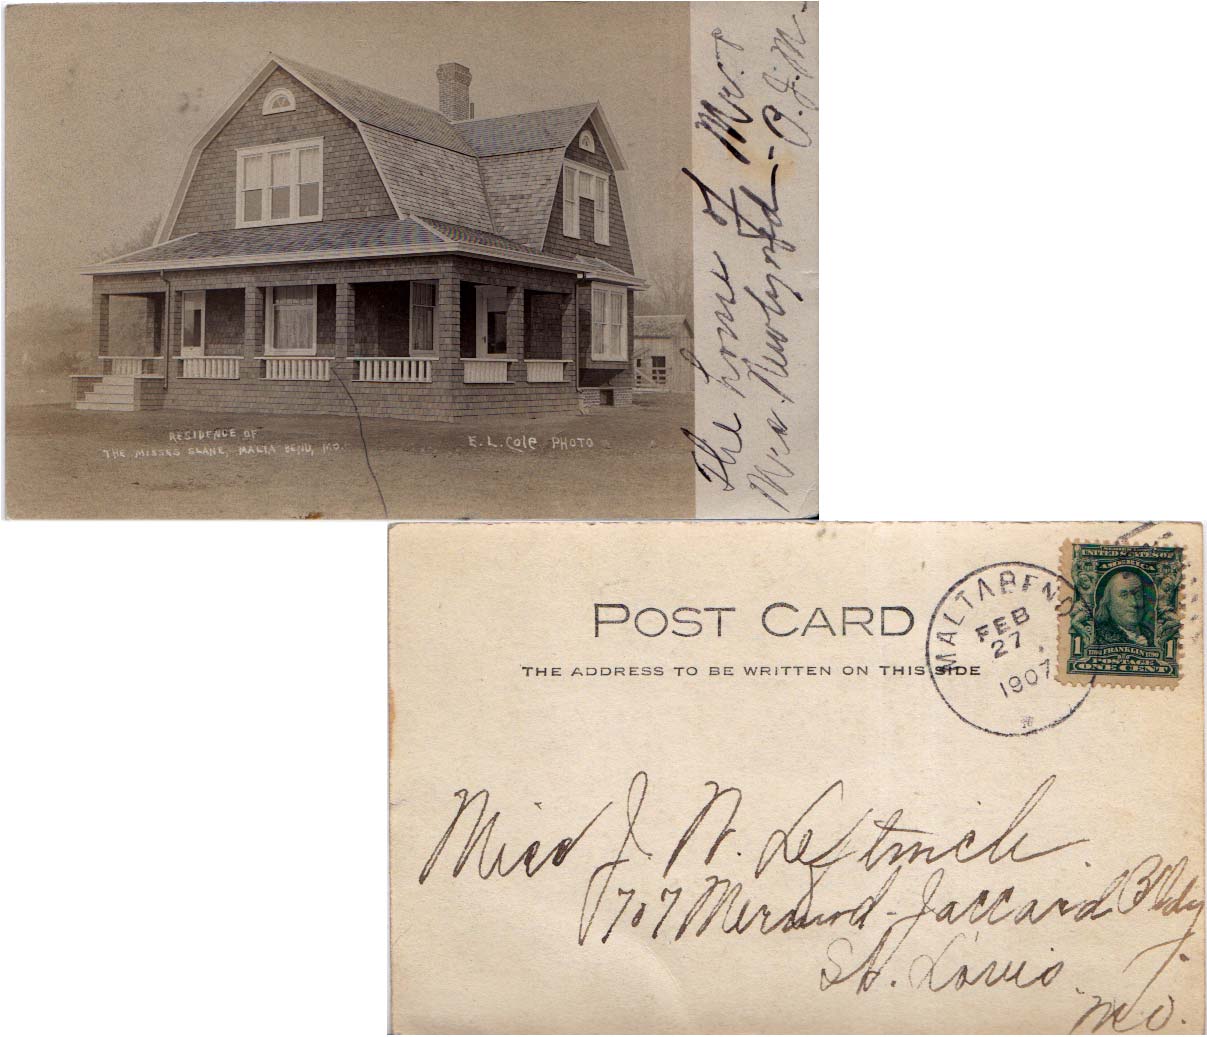 RESIDENCE OF
THE MISSES SLANE, MALTA BEND, MO.
E. L. Cole PHOTO
The home of Mr. &
Mrs. Newlywed - P. J. M -
POST CARD
THE ADDRESS TO BE WRITTEN ON THIS SIDE
MALTA BEND
FEB
27
1907
UNITED STATES OF
AMERICA
1 FRANKLIN 1
POSTAGE
ONE CENT
Miss J. W. Leftwich
707 Mermod-Jaccard Bldg
St. Louis
Mo.